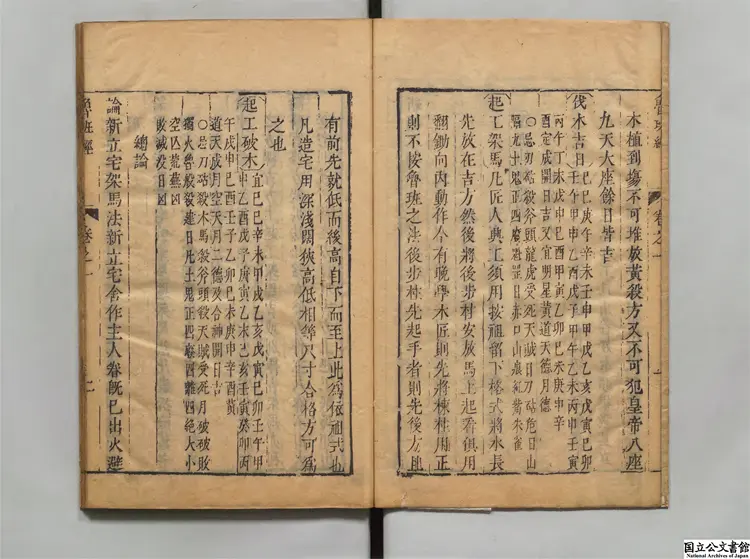 木植到塲不可堆放黃殺方又不可犯皇帝八座
九天大座餘日皆吉
伐木吉日己巳庚午辛未壬申甲戌乙亥戊寅己卯
壬午甲申乙酉戊子甲午乙未丙申壬寅
丙午丁未戊申己酉甲寅乙卯己未庚申辛
酉定成開日吉又宜明星黃道天德月德
○忌刀砧殺斧頭龍虎受死天賊日刀砧危日山
隔九土鬼正四廢魁罡日赤口山痕紅觜朱雀
起工架馬凡匠人與工須用按祖留下格式將水長
先放在吉方然後將後步柱安放馬上起看俱用
翻鋤向內動作今有晚學木匠則先將棟柱用正
則不按魯班之法後步柱先起手者則先後方且
魯班經
卷之一
一
有前先就低而後高自下而至上此為依祖式也
凡造宅用深淺闊狹高低相等尺寸合格方可為
之也
起工破木宜己巳辛未甲戌乙亥戊寅己卯壬午甲
申乙酉戊子庚寅乙未己亥壬寅癸卯丙
午戊申己酉壬子乙卯己未庚申辛酉黃
道天成月空天月二德及合神開日吉
○忌刀砧殺木馬殺斧頭殺天賊受死月破破敗
獨火魯般殺建日九土鬼正四廢四離四絕大小
空亡荒蕪凶
敗滅沒日凶
總論
論新立宅架馬法新立宅舍作主人眷既已出火避
魯班經
卷之一
二
国立公文書館
National Archives of Japan